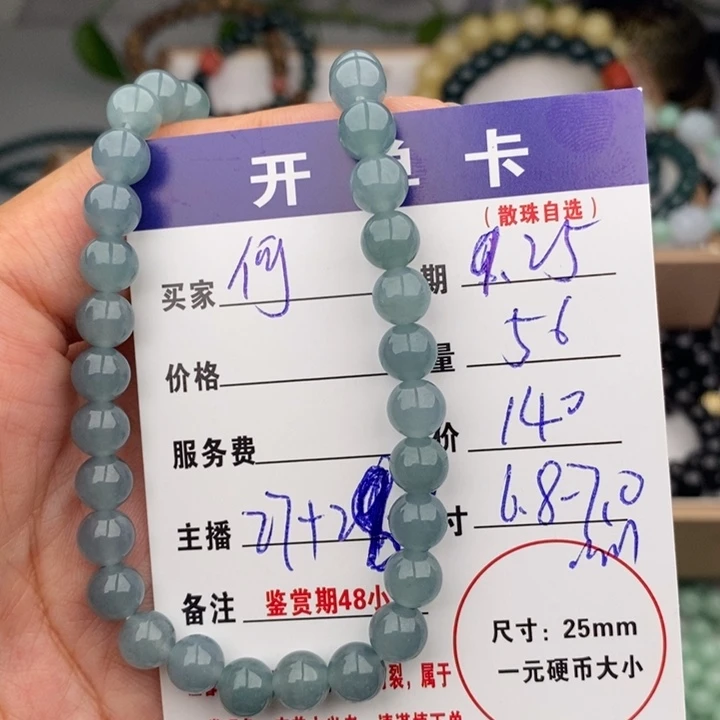 开单卡
（散珠自选）
买家 何 期 9.25
价格 量 56
服务费 价 140
主播 27+28 寸 6.8-7.0
mm
备注 鉴赏期48小
尺寸：25mm
一元硬币大小
裂，属于